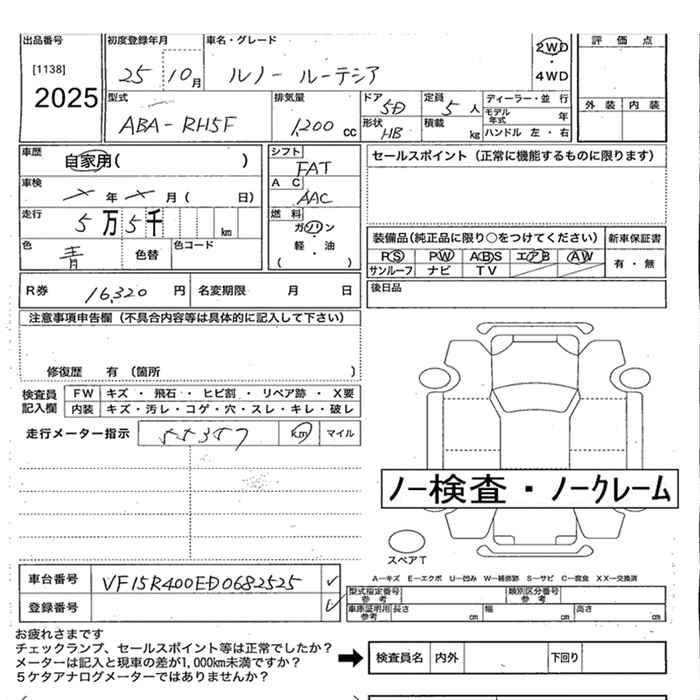 出品番号 初度登録年月 車名・グレード 評価点
[1138] 25 10月 ルノー ルーテシア 2WD
・
4WD
2025 外装 内装
型式 排気量 ドア 5D 定員 5人 ディーラー・並行
ABA-RH5F 1,200 cc 形状 HB 積載 kg モデル年式 年
ハンドル 左・右
車歴 自家用( ) シフト FAT セールスポイント(正常に機能するものに限ります)
車検 年 月 ( 日) AC AAC
走行 5万5千 km 燃料 ガソリン
軽・油
( )
色 青 色替 色コード 装備品(純正品に限り○をつけてください) 新車保証書
PS PW ABS エアB AW 有・無
サンルーフ ナビ TV
R券 16,320 円 名変期限 月 日 後日品
注意事項申告欄(不具合内容等は具体的に記入して下さい)
修復歴 有 (箇所 )
検査員 FW キズ・飛石・ヒビ割・リペア跡・X要
記入欄 内装 キズ・汚レ・コゲ・穴・スレ・キレ・破レ
走行メーター指示 55357 km マイル
ノー検査・ノークレーム
スペアT
A―キズ E―エクボ U―凹み W―補修跡 S―サビ C―腐食 XX―交換済
車台番号 VF15R400ED0682525
型式指定番号参考 類別区分番号参考
登録番号 車庫証明用参考 長さ cm 幅 cm 高さ cm
お疲れさまです
チェックランプ、セールスポイント等は正常でしたか?
メーターは記入と現車の差が1,000km未満ですか?
5ケタアナログメーターではありませんか?
検査員名 内外 下回り